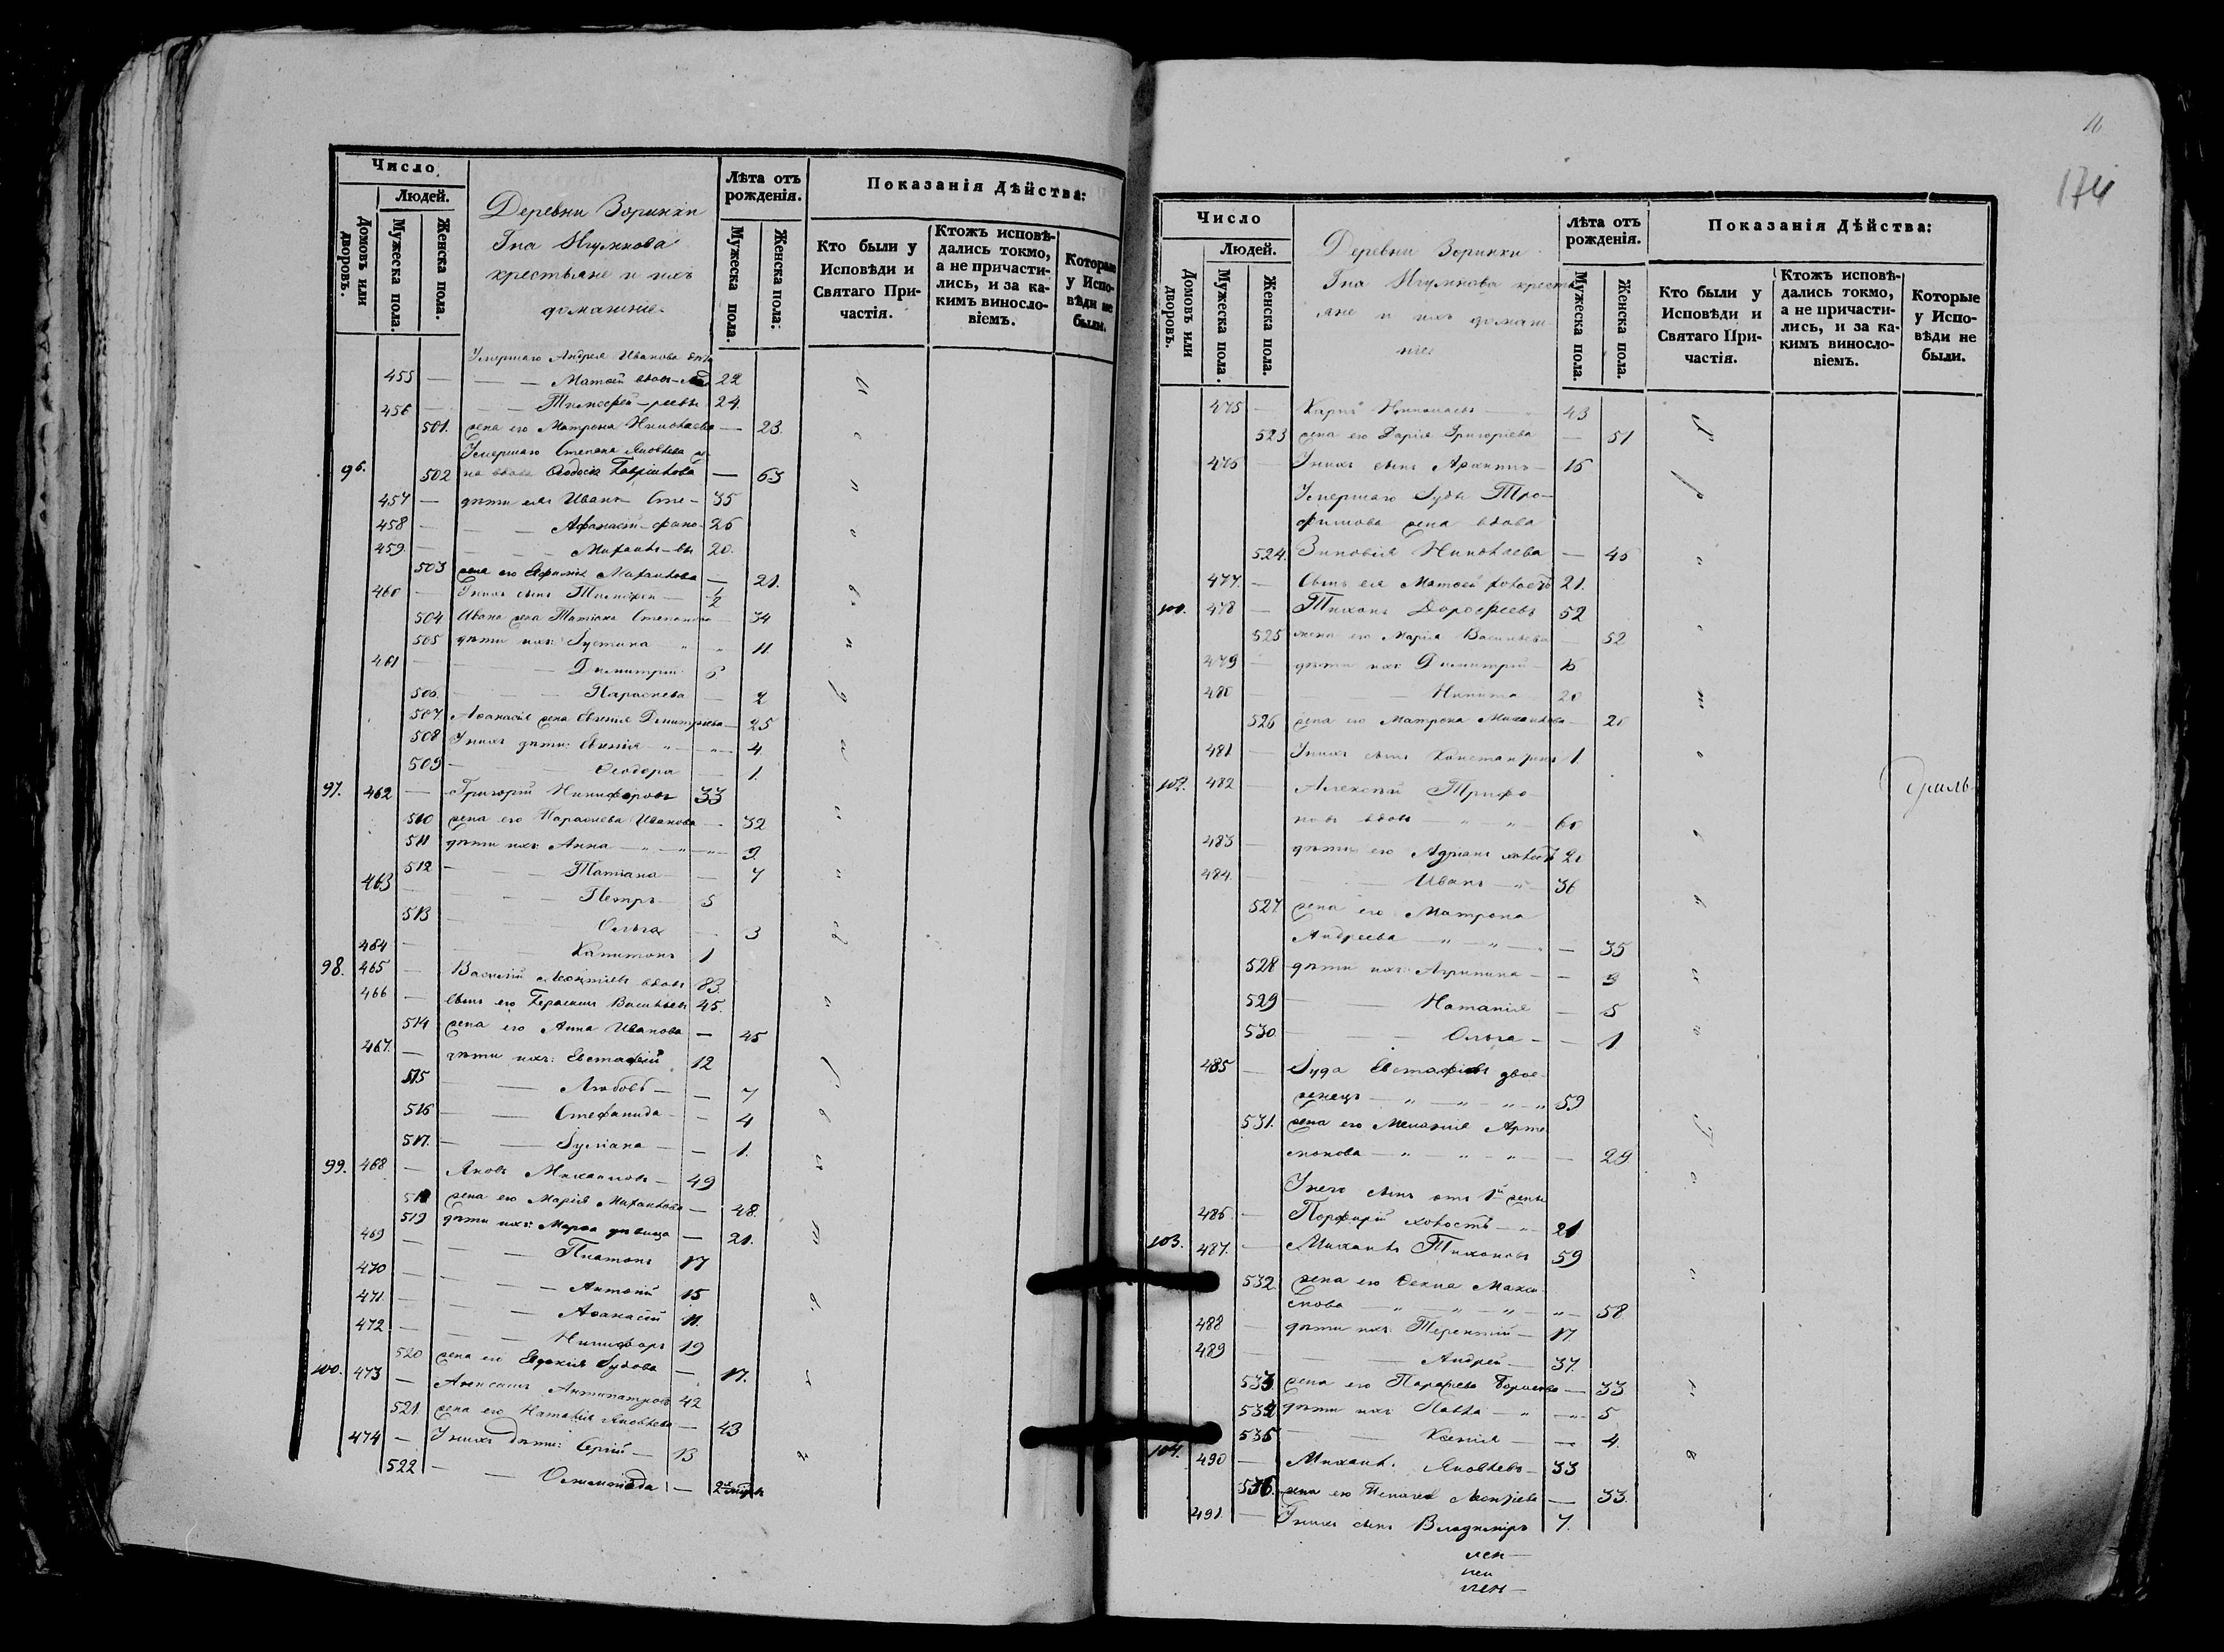 Число
Людей.
Домовъ или дворовъ.
Мужеска пола.
Женска пола.
Деревни Зоринки
Гна Игумнова
крестьяне и ихъ
домашніе
Лѣта отъ рожденія.
Мужеска пола.
Женска пола.
Показанія Дѣйства:
Кто были у Исповѣди и Святаго Причастія.
Ктожъ исповѣдались токмо, а не причастились, и за какимъ винословіемъ.
Которые у Исповѣди не были.
Умершаго Андрея Иванова
455 — Матвей вдовъ 22
456 — Тимофей 24
501 жена его Матрона Николаева — 23
Умершаго Степана Яковлева
96. 502 на вдова Ѳеодосія Гаврилова — 63
457 — дѣти ея: Иванъ 35
458 — Афанасій 26
459 — Михаилъ 20
503 жена его Евфимія Михаилова — 21
460 — У нихъ сынъ Тимофей 1/2
504 Ивана жена Татіана Степанова — 34
505 дѣти ихъ: Іустина — 11
461 — Димитрій 6
506 — Параскева — 2
507 Афанасія жена Евгенія Димитріева — 25
508 У нихъ дѣти: Евгенія — 4
509 — Ѳеодора — 1
97. 462 — Григорій Никифоровъ 33
510 жена его Параскева Иванова — 32
511 дѣти ихъ: Анна — 9
512 — Татіана — 7
463 — Петръ 5
513 — Ольга — 3
464 — Капитонъ 1
98. 465 — Василій Леонтіевъ вдовъ 83
466 — сынъ его Герасимъ Васильевъ 45
514 жена его Анна Иванова — 45
467 — дѣти ихъ: Евстафій 12
515 — Любовь — 7
516 — Стефанида — 4
517 — Іуліана — 1
99. 468 — Яковъ Михаиловъ 49
518 жена его Марія Михаилова — 48
519 дѣти ихъ: Марѳа дѣвица — 21
469 — Платонъ 17
470 — Антоній 15
471 — Афанасій 11
472 — Никифоръ 19
520 жена его Евдокія — 17
100. 473 — Алексій Антипатровъ 42
521 жена его Наталія Яковлева — 43
474 — У нихъ дѣти: Сергій 13
522 — Олимпіада —
174
Число
Людей.
Домовъ или дворовъ.
Мужеска пола.
Женска пола.
Деревни Зоринки
Гна Игумнова кресть
яне и ихъ домаш
ніе
Лѣта отъ рожденія.
Мужеска пола.
Женска пола.
Показанія Дѣйства:
Кто были у Исповѣди и Святаго Причастія.
Ктожъ исповѣдались токмо, а не причастились, и за какимъ винословіемъ.
Которые у Исповѣди не были.
475 — Карпъ Николаевъ 43
523 жена его Дарія Григоріева — 51
476 — У нихъ сынъ Архиппъ 16
Умершаго Іуды Тро-
фимова жена вдова
524 Зиновія Николаева — 46
477 — Сынъ ея Матвей холостъ 21
101. 478 — Тихонъ Дорофеевъ 52
525 жена его Марія Васильева — 52
479 — дѣти ихъ: Димитрій 15
480 — Никита 20
526 жена его Матрона Михаилова — 20
481 — У нихъ сынъ Константинъ 1
102. 482 — Алексѣй Трифо-
новъ вдовъ 60
483 — дѣти его Адріанъ холостъ 20
484 — Иванъ 36
527 жена его Матрона
Андреева — 35
528 дѣти ихъ: Агрипина — 9
529 — Наталія — 5
530 — Ольга — 1
485 — Іуда Евстафіевъ двое-
женецъ 59
531 жена его Меланія Арте
монова — 29
У него сынъ отъ 1й жены
486 — Порфирій холостъ 21
103. 487 — Михаилъ Тихоновъ 59
532 жена его Ѳекла Макси
мова — 58
488 — дѣти ихъ: Терентій 17
489 — Андрей 37
533 жена его Параскева Борисова — 33
534 дѣти ихъ: Павла — 5
535 — Ксенія — 4
104. 490 — Михаилъ Яковлевъ 33
536 жена его Пелагея Леонтіева — 33
491 — У нихъ сынъ Владиміръ 7